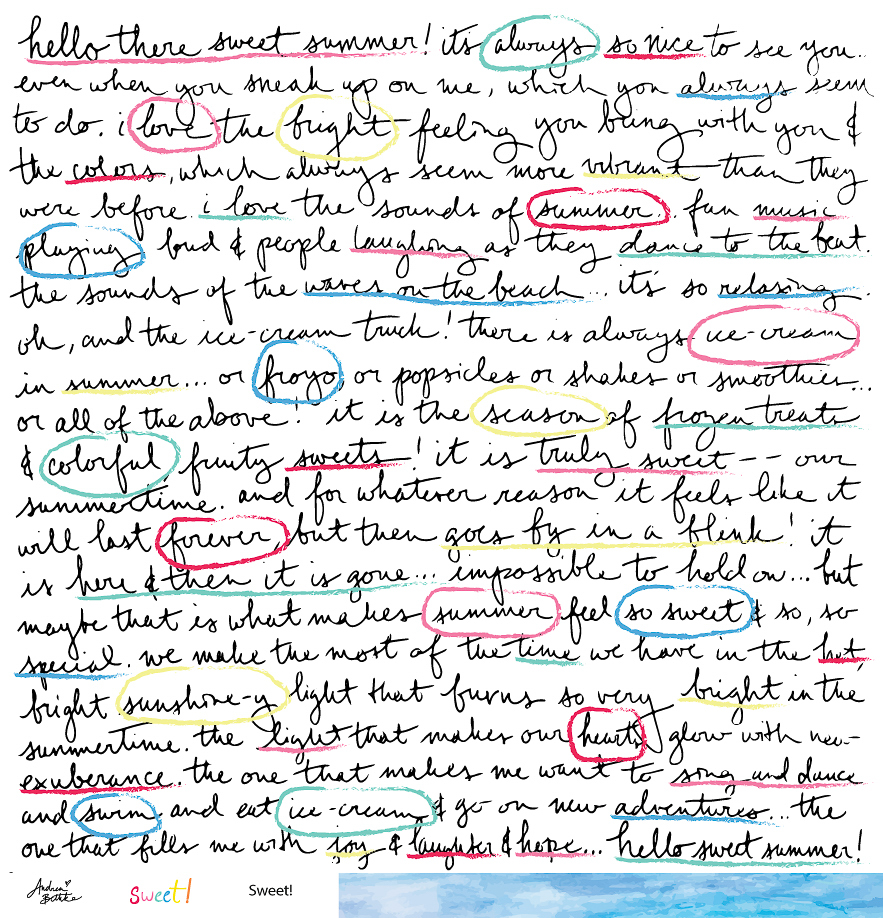 hello there sweet summer! it's always so nice to see you..
even when you sneak up on me, which you always seem
to do. i love the bright feeling you bring with you &
the colors, which always seem more vibrant than they
were before. i love the sounds of summer.. fun music
playing loud & people laughing as they dance to the beat.
the sounds of the waves on the beach... it's so relaxing.
oh, and the ice-cream truck! there is always ice-cream
in summer... or froyo, or popsicles or shakes or smoothies...
or all of the above! it is the season of frozen treats
& colorful, fruity sweets! it is truly sweet -- our
summertime. and for whatever reason it feels like it
will last forever, but then goes by in a blink! it
is here & then it is gone... impossible to hold on... but
maybe that is what makes summer feel so sweet & so, so
special. we make the most of the time we have in the hot,
bright sunshine-y light that burns so very bright in the
summertime. the light that makes our hearts glow with new-
exuberance. the one that makes me want to sing and dance
and swim and eat ice-cream & go on new adventures... the
one that fills me with joy & laughter & hope... hello sweet summer!
Andrea Bottke Sweet! Sweet!